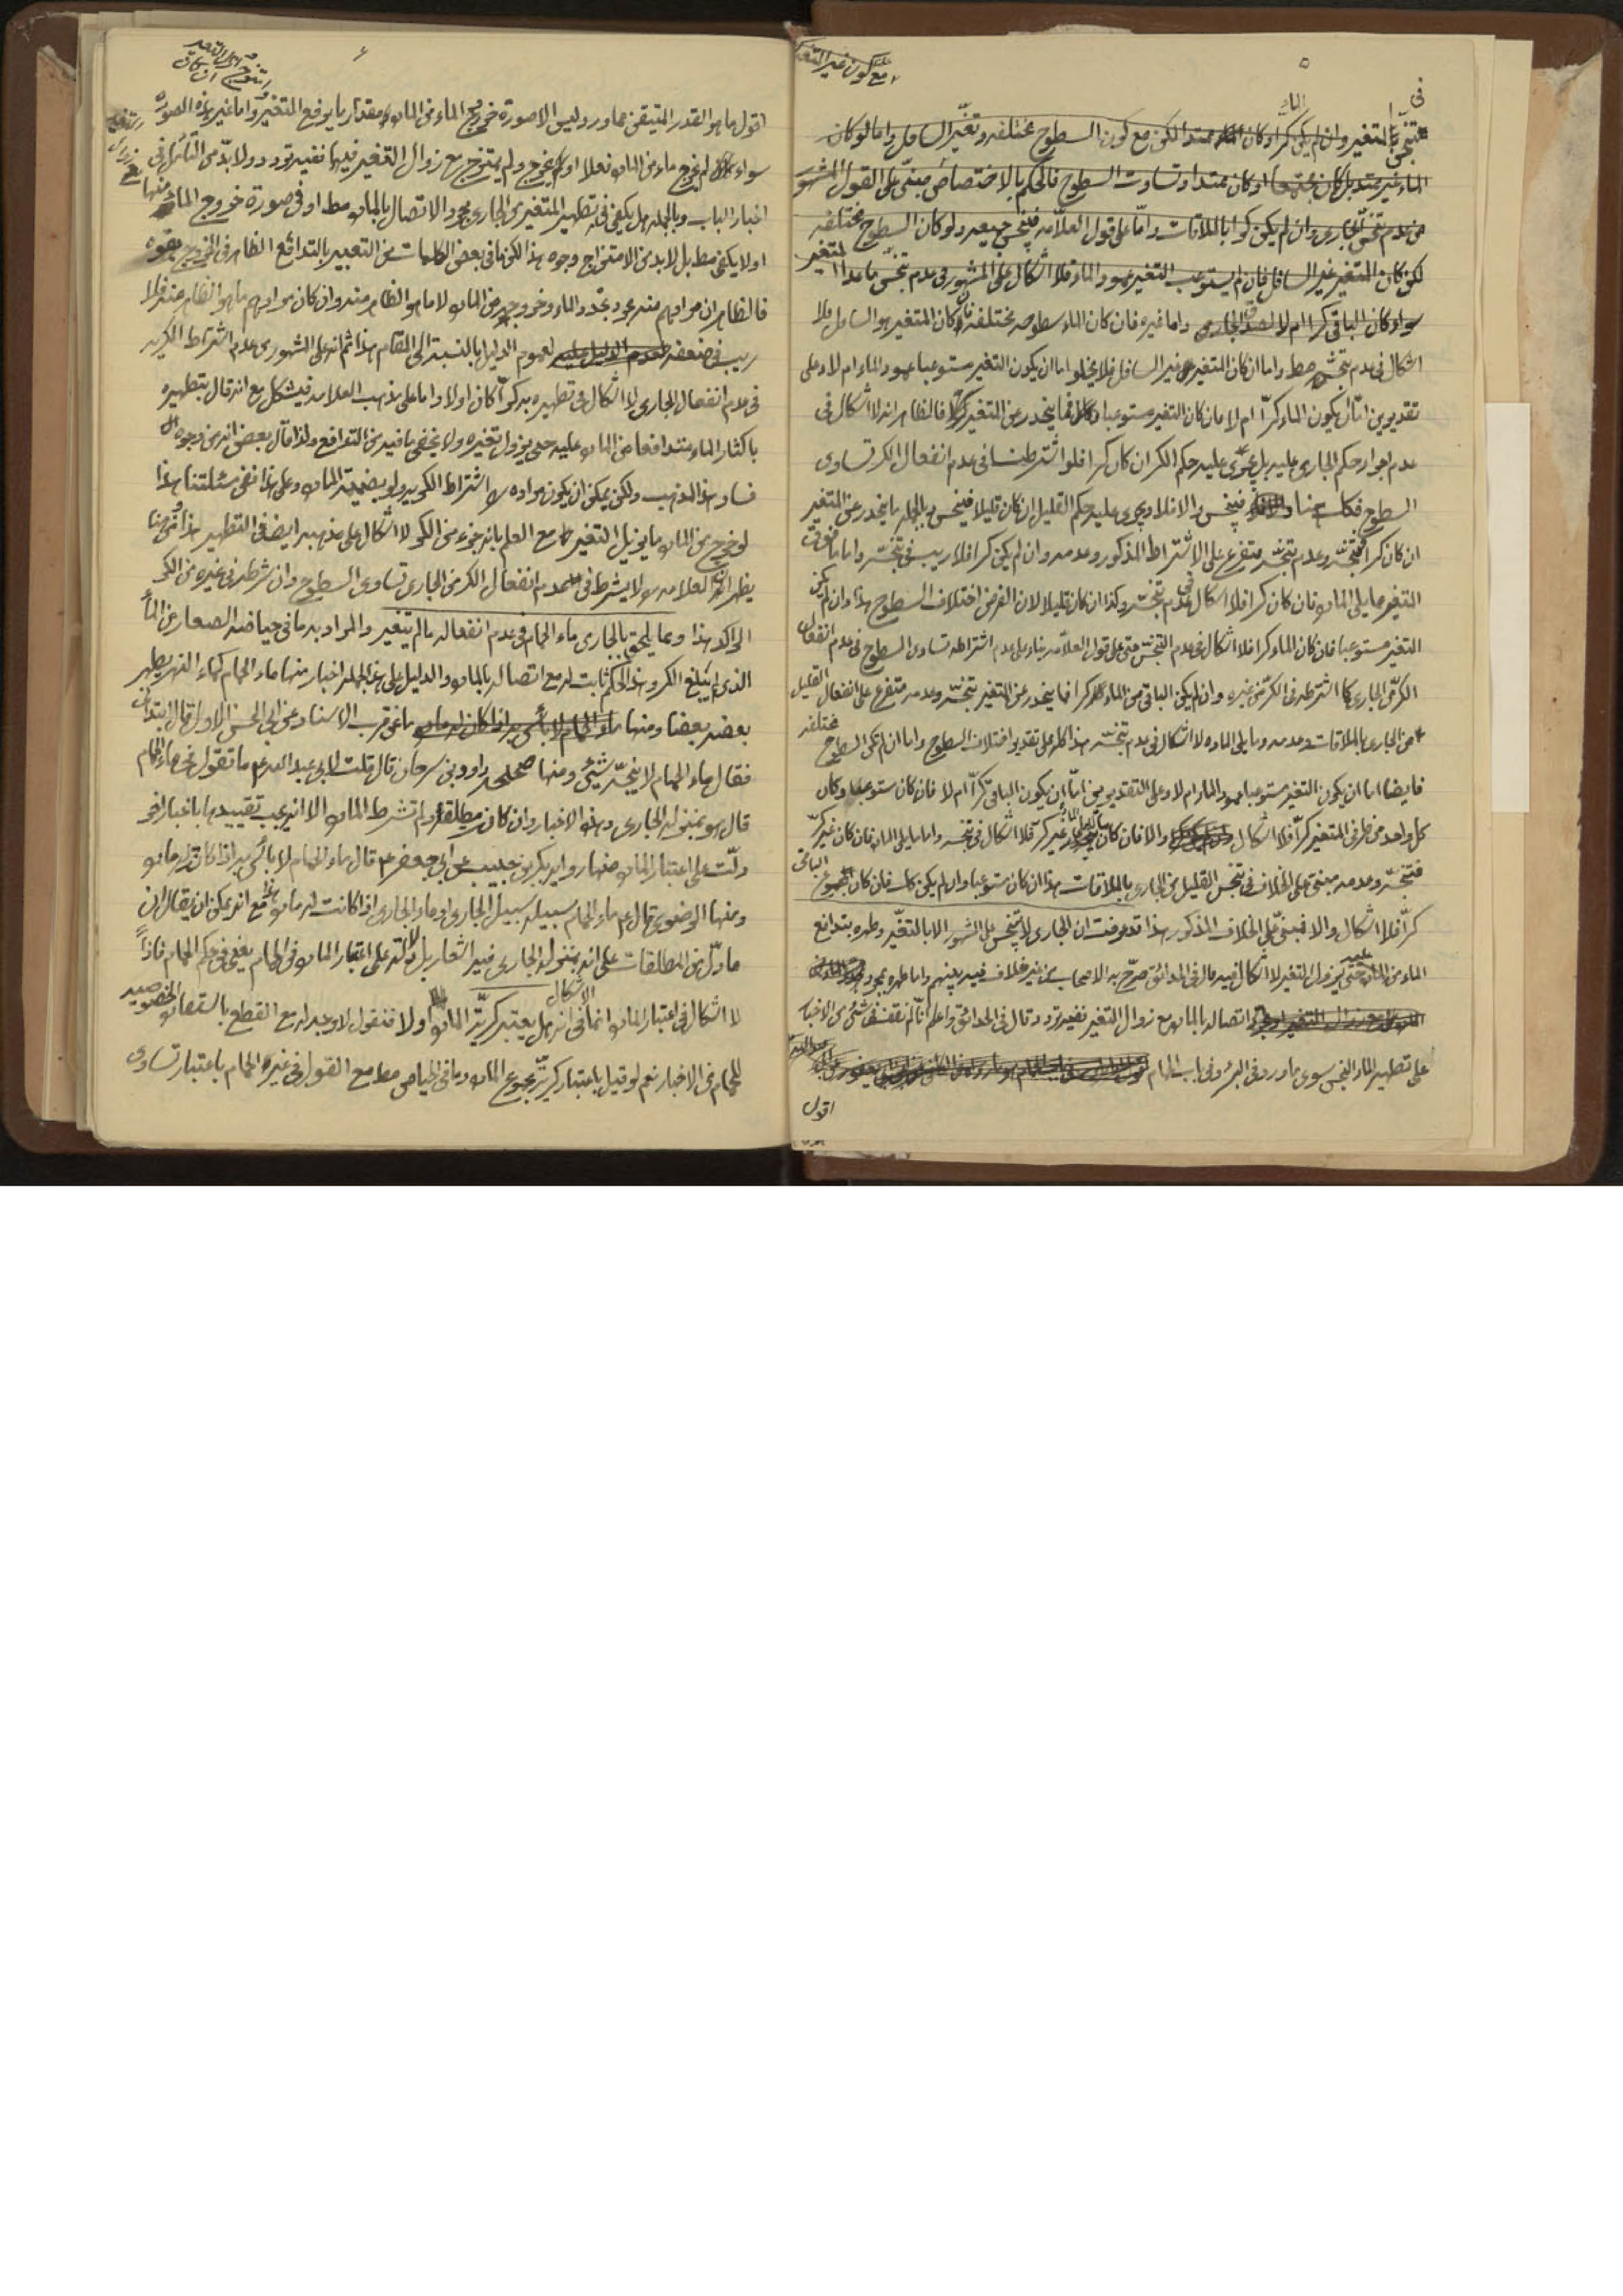 ٥
مع كون غير المتغير
في
بالتغير وان لم يكن كرا وكان الماء ممتدا لكن مع كون السطوح مختلفه وتغير السافل واما لو كان
الماء غير ممتد بل كان مجتمعا او كان ممتدا وتساوت السطوح فالحكم بالاختصاص مبني على القول المشهور
من عدم تنجس الجاري وان لم يكن كرا بالملاقات واما على قول العلامه فينجس جميعه ولو كان السطوح مختلفه
لكن كان المتغير غير السافل فان لم يستوعب التغير عمود الماء فلا اشكال على المشهور في عدم تنجس ما عدا المتغير
سواء كان الباقي كرا ام لا واما غيره فان كان الماء سطوحه مختلفه فان كان المتغير هو السافل فلا
اشكال في عدم تنجسه مط واما ان كان المتغير غير السافل فلا يخلو اما ان يكون التغير مستوعبا عمود الماء ام لا وعلى
تقديرين اما ان يكون الماء كرا ام لا فان كان التغير مستوعبا وكان ما ينحدر عن المتغير كرا فالظاهر انه لا اشكال في
عدم اجراء حكم الجاري عليه بل يجري عليه حكم الكر ان كان كرا فلو اشترطنا في عدم انفعال الكر تساوي
السطوح فكك هنا فينجس والا فلا ويجري عليه حكم القليل ان كان قليلا فينجس وبالجمله ما ينحدر عن المتغير
ان كان كرا فتنجسه وعدم تنجسه متفرع على الاشتراط المذكور وعدمه وان لم يكن كرا فلا ريب في تنجسه واما ما فوق
التغير مما يلي الماده فان كان كرا فلا اشكال في عدم تنجسه وكذا ان كان قليلا لان الفرض اختلاف السطوح هذا وان لم يكن
التغير مستوعبا فان كان الماء كرا فلا اشكال في عدم التنجس حتى على قول العلامه بناء على عدم اشتراطه تساوي السطوح في عدم انفعال
الكر في الجاري كما اشترطه في الكر في غيره وان لم يكن الباقي من الماء كرا فما ينحدر عن المتغير تنجسه وعدمه متفرع على انفعال القليل
من الجاري بالملاقات وعدمه وما يلي الماده لا اشكال في عدم تنجسه هذا كله على تقدير اختلاف السطوح واما ان لم تكن السطوح مختلفه
فايضا اما ان يكون التغير مستوعبا عمود الماء ام لا وعلى التقديرين اما ان يكون الباقي كرا ام لا فان كان مستوعبا وكان
كل واحد من طرفي المتغير كرا فلا اشكال والا فان كان غير كر فلا اشكال في تنجسه واما ما يلي الماده فان كان غير كر
فتنجسه وعدمه مبتني على الخلاف في تنجس القليل من الجاري بالملاقات هذا ان كان مستوعبا وان لم يكن كك فان كان المجموع الباقي
كرا فلا اشكال والا فيبتني على الخلاف المذكور هذا قد عرفت ان الجاري لا ينجس على المشهور الا بالتغير وطهره بتدافع
الماء من الماده عليه حتى يزول التغير لا اشكال فيه بل في الحدائق صرح به الاصحاب من غير خلاف فيه بينهم واما طهره بمجرد
اتصاله بالماده مع زوال التغير ففيه تردد قال في الحدائق واعلم انا لم نقف في شئ من الاخبار
على تطهير الماء النجس سوى ما ورد في البئر وفي باب الحمام
اقول
٦
اقول ما هو القدر المتيقن مما ورد وليس الا صورة خروج الماء من الماده مقدار ما يرفع المتغير واما غير هذه الصوره
سواء لم يخرج ماء من الماده فعلا او يخرج ولم يمتزج مع زوال التغير فيهما ففيه تردد ولا بد من التأمل في
اخبار الباب وبالجمله هل يكفي في تطهير المتغير من الجاري مجرد الاتصال بالماده مط او في صورة خروج الماء منها
او لا يكفي مط بل لا بد من الامتزاج وجوه هذا لكن ما في بعض الكلمات من التعبير بالتدافع الظاهر في الخروج بقوه
فالظاهر ان مرادهم منه مجرد تجدد الماء وخروجه من الماده لا ما هو الظاهر منه وان كان مرادهم ما هو الظاهر منه فلا
ريب في ضعفه لعموم الدليل بالنسبة الى المقام هذا ثم انه على المشهور من عدم اشتراط الكريه
في عدم انفعال الجاري لا اشكال في تطهيره به كرا كان او لا واما على مذهب العلامه فيشكل مع انه قال بتطهيره
باكثار الماء متدافعا من الماده عليه حتى يزول تغيره ولا يخفى ما فيه من التدافع ولذا قال بعض انه من وجوه
فساد هذا المذهب ولكن يمكن ان يكون مراده من اشتراط الكريه ولو بضميمة الماده وعلى هذا ففي مسئلتنا هذا
لو خرج من الماده ما يزيل التغير مع العلم بانه جزء من الكر لا اشكال على مذهبه ايضا في التطهير هذا ومن هنا
يظهر ان العلامه ره لا يشترط في عدم انفعال الكر من الجاري تساوي السطوح وان شرطه في غيره من الكر
الراكد هذا ومما يلحق بالجاري ماء الحمام في عدم انفعاله ما لم يتغير والمراد به ما في حياضه الصغار من الماء
الذي لم يبلغ الكر وهذا الحكم ثابت له مع اتصاله بالماده والدليل على هذا الجمله اخبار منها ماء الحمام كماء النهر يطهر
بعضه بعضا ومنها ما عن قرب الاسناد عن ابي الحسن الاول قال ابتدأني
فقال ماء الحمام لا ينجسه شئ ومنها صحيحه داود بن سرحان قال قلت لابي عبد الله ع ما تقول في ماء الحمام
قال هو بمنزلة الجاري وهذه الاخبار وان كانت مطلقه ولم تشترط الماده الا انه يجب تقييدها باخبار اخر
دلت على اعتبار الماده منها رواية بكر بن حبيب عن ابي جعفر ع قال ماء الحمام لا بأس به اذا كان له ماده
ومنها الرضوي قال ع ماء الحمام سبيله سبيل الجاري او ماء الجاري اذا كانت له ماده هذا مع انه يمكن ان يقال ان
ما دل من المطلقات على انه بمنزلة الجاري فيه اشعار بل دلالة على اعتبار الماده في الحمام يعني في حكم الحمام فاذا
لا اشكال في اعتبار الماده انما الاشكال في انه هل يعتبر كرية الماده او لا فنقول لا وجه له مع القطع باستفادة الخصوصيه
للحمام من الاخبار نعم لو قيل باعتبار كرية مجموع الماده وما في الحياض مط مع القول في غير الحمام باعتبار تساوي